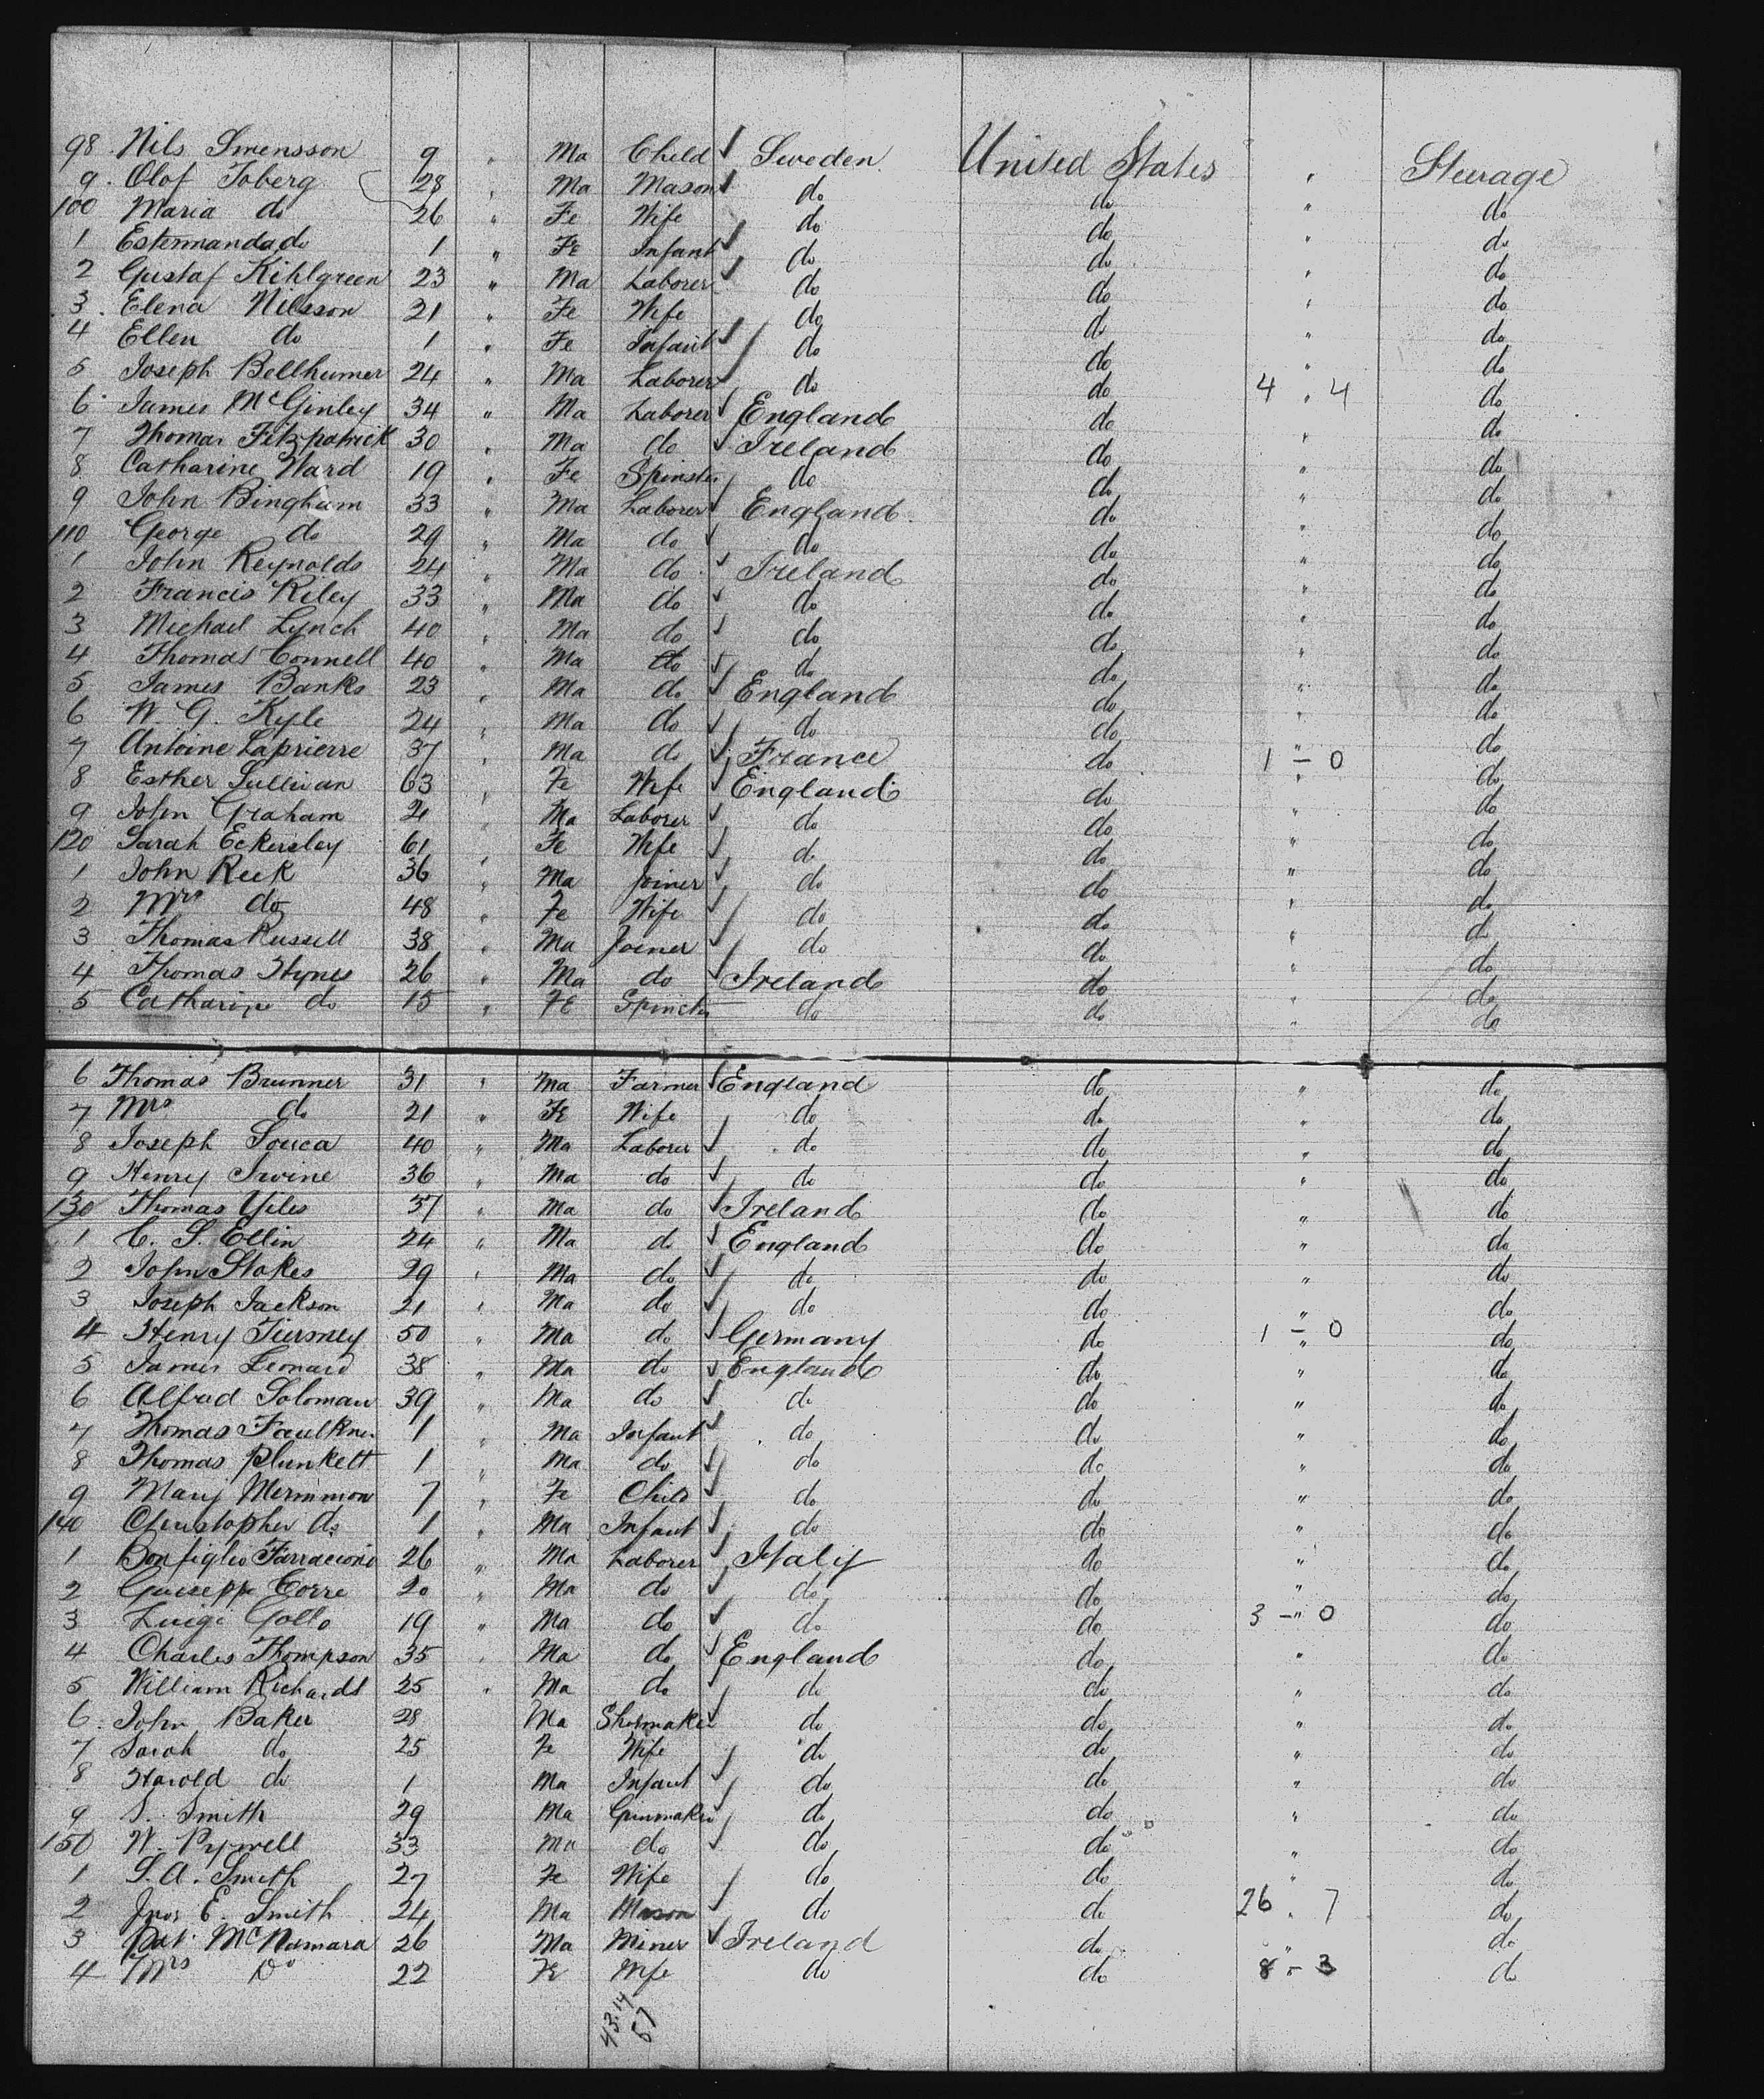 98 Nils Swensson 9 " Ma Child Sweden United States " Steerage
9 Olof Toberg 28 " Ma Mason do do " do
100 Maria do 26 " Fe Wife do do " do
1 Estermanda do 1 " Fe Infant do do " do
2 Gustaf Kihlgreen 23 " Ma Laborer do do " do
3 Elena Nilsson 21 " Fe Wife do do " do
4 Ellen do 1 " Fe Infant do do " do
5 Joseph Bellhumer 24 " Ma Laborer do do 4 " 4 do
6 James McGinley 34 " Ma Laborer England do " do
7 Thomas Fitzpatrick 30 " Ma do Ireland do " do
8 Catharine Ward 19 " Fe Spinster do do " do
9 John Bingham 33 " Ma Laborer England do " do
110 George do 29 " Ma do do do " do
1 John Reynolds 24 " Ma do Ireland do " do
2 Francis Riley 33 " Ma do do do " do
3 Michael Lynch 40 " Ma do do do " do
4 Thomas Connell 40 " Ma do do do " do
5 James Banks 23 " Ma do England do " do
6 W. G. Kyle 24 " Ma do do do " do
7 Antoine Laprierre 37 " Ma do France do 1 - 0 do
8 Esther Sullivan 63 " Fe Wife England do " do
9 John Graham 21 " Ma Laborer do do " do
120 Sarah Eckersley 61 " Fe Wife do do " do
1 John Reek 36 " Ma Joiner do do " do
2 Mrs do 48 " Fe Wife do do " do
3 Thomas Russell 38 " Ma Joiner do do " do
4 Thomas Hynes 26 " Ma do Ireland do " do
5 Catharine do 15 " Fe Spinster do do " do
6 Thomas Brunner 31 " Ma Farmer England do " do
7 Mrs do 21 " Fe Wife do do " do
8 Joseph Souca 40 " Ma Laborer do do " do
9 Henry Irvine 36 " Ma do do do " do
130 Thomas Giles 37 " Ma do Ireland do " do
1 C. S. Ellin 24 " Ma do England do " do
2 John Stokes 29 " Ma do do do " do
3 Joseph Jackson 21 " Ma do do do " do
4 Henry Tiersney 50 " Ma do Germany do 1 - 0 do
5 James Leonard 38 " Ma do England do " do
6 Alfred Soloman 39 " Ma do do do " do
7 Thomas Faulkner 1 " Ma Infant do do " do
8 Thomas Plunkett 1 " Ma do do do " do
9 Mary Merimmon 7 " Fe Child do do " do
140 Christopher do 1 " Ma Infant do do " do
1 Bonfiglio Farracione 26 " Ma Laborer Italy do " do
2 Guiseppe Corre 20 " Ma do do do " do
3 Luigi Gollo 19 " Ma do do do 3 - 0 do
4 Charles Thompson 35 " Ma do England do " do
5 William Richards 25 " Ma do do do " do
6 John Baker 28 Ma Shoemaker do do " do
7 Sarah do 25 Fe Wife do do " do
8 Harold do 1 Ma Infant do do " do
9 S. Smith 29 Ma Gunmaker do do " do
150 W. Pyrwell 33 Ma do do do " do
1 S. A. Smith 27 Fe Wife do do " do
2 Jnos E. Smith 24 Ma Mason do do 26 . 7 do
3 Pat McNamara 26 Ma Miner Ireland do " do
4 Mrs Do 22 Fe Wife do do 8 - 3 do
43.14
57